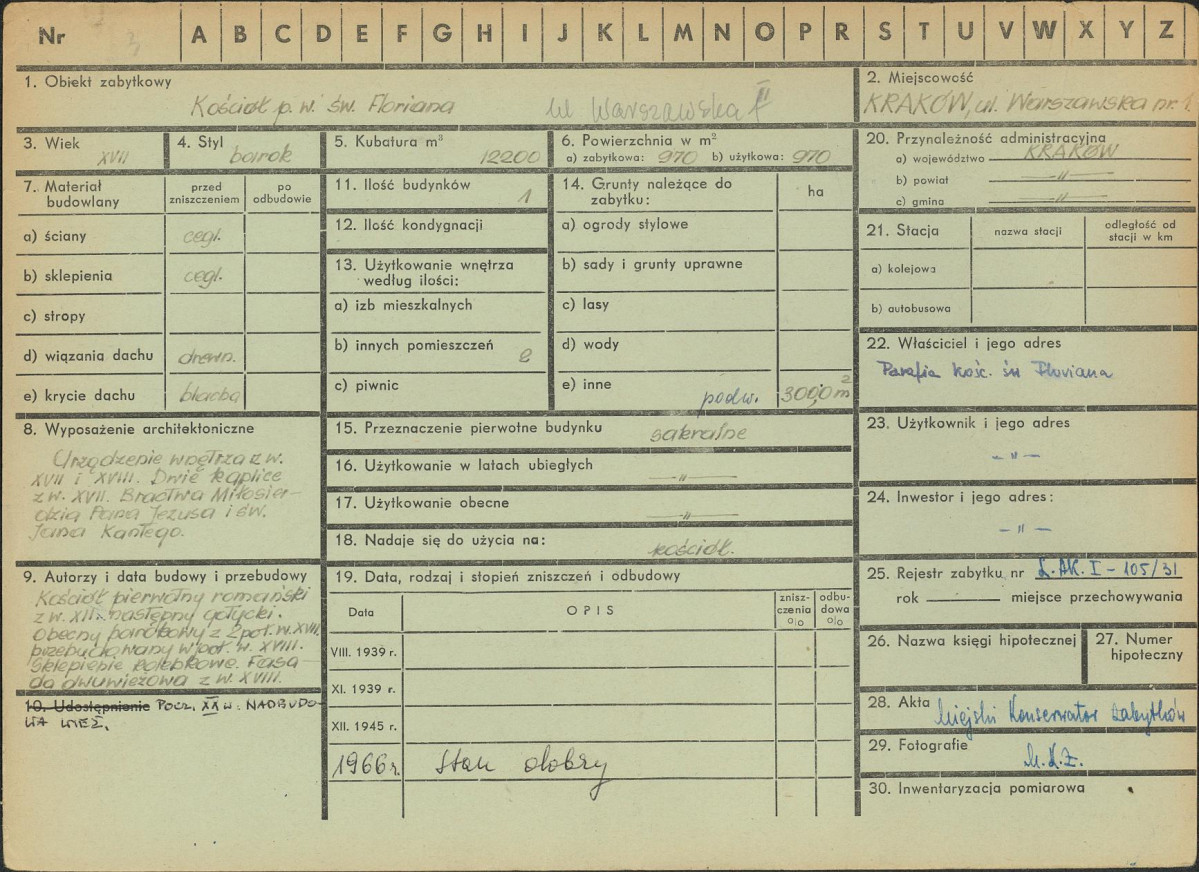 Nr A B C D E F G H I J K L M N O P R S T U V W X Y Z
1. Obiekt zabytkowy
Kościół p.w. św. Floriana
ul Warszawska
2. Miejscowość
KRAKÓW, ul. Warszawska nr 1
3. Wiek
XVII
4. Styl
barok
5. Kubatura m³
12200
6. Powierzchnia w m²
a) zabytkowa: 970 b) użytkowa: 970
7. Materiał budowlany
przed zniszczeniem
po odbudowie
a) ściany cegl.
b) sklepienia cegl.
c) stropy
d) wiązania dachu drewn.
e) krycie dachu blacha
8. Wyposażenie architektoniczne
Urządzenie wnętrza z w.
XVII i XVIII. Dwie kaplice
z w. XVII. Bractwa Miłosier-
dzia Pana Jezusa i św.
Jana Kantego.
9. Autorzy i data budowy i przebudowy
Kościół pierwotny romański
z w. XII. następny gotycki.
Obecny barokowy z 2 poł. w. XVII,
przebudowany w poł. w. XVIII.
Sklepienie kolebkowe. Fasa-
da dwuwieżowa z w. XVIII.
10. Udostępnienie POCZ. XX W. NADBUDO-
WA WIEŻ.
11. Ilość budynków 1
12. Ilość kondygnacji
13. Użytkowanie wnętrza
według ilości:
a) izb mieszkalnych
b) innych pomieszczeń 2
c) piwnic
14. Grunty należące do
zabytku:
ha
a) ogrody stylowe
b) sady i grunty uprawne
c) lasy
d) wody
e) inne podw. 300,0 m²
15. Przeznaczenie pierwotne budynku sakralne
16. Użytkowanie w latach ubiegłych —"—
17. Użytkowanie obecne —"—
18. Nadaje się do użycia na: kościół.
19. Data, rodzaj i stopień zniszczeń i odbudowy
Data
OPIS
znisz-
czenia
%
odbu-
dowa
%
VIII. 1939 r.
XI. 1939 r.
XII. 1945 r.
1966 r. Stan dobry
20. Przynależność administracyjna
a) województwo KRAKÓW
b) powiat —"—
c) gmina —"—
21. Stacja
nazwa stacji
odległość od
stacji w km
a) kolejowa
b) autobusowa
22. Właściciel i jego adres
Parafia kość. św Floriana
23. Użytkownik i jego adres
—"—
24. Inwestor i jego adres:
—"—
25. Rejestr zabytku nr L.AK. I - 105/31
rok miejsce przechowywania
26. Nazwa księgi hipotecznej
27. Numer
hipoteczny
28. Akta Miejski Konserwator Zabytków
29. Fotografie
M.K.Z.
30. Inwentaryzacja pomiarowa